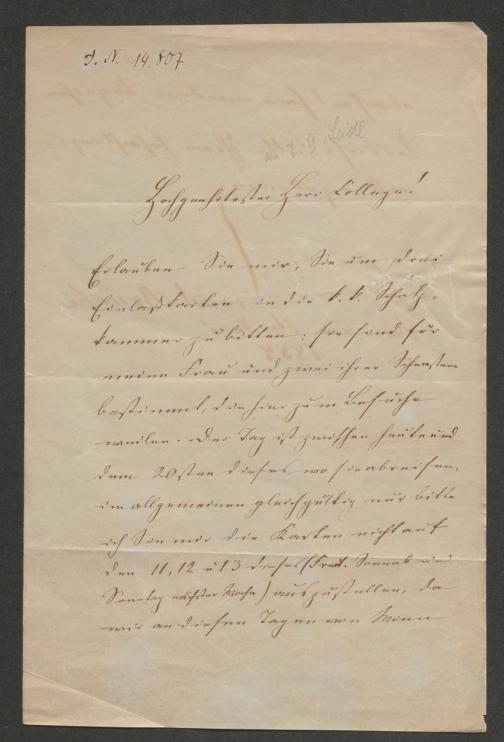 J. N. 14.807
an J. G Seidl
Hochgeehrtester Herr College!
Erlauben Sie mir, Sie um drei
Einlaßkarten in die k. k. Schatz-
kammer zu bitten; sie sind für
meine Frau und zwei ihrer Schwestern
bestimmt, die hier zum Besuche
weilen. Der Tag ist zwischen heute und
dem 20sten dieses, wo sie abreisen,
im allgemeinen gleichgültig nur bitte
ich Sie mir die Karten nicht auf
den 11, 12 u 13 dieses (Freit. Sonnab und
Sonntag nächster Woche) auszustellen, da
wir an diesen Tagen von Wien